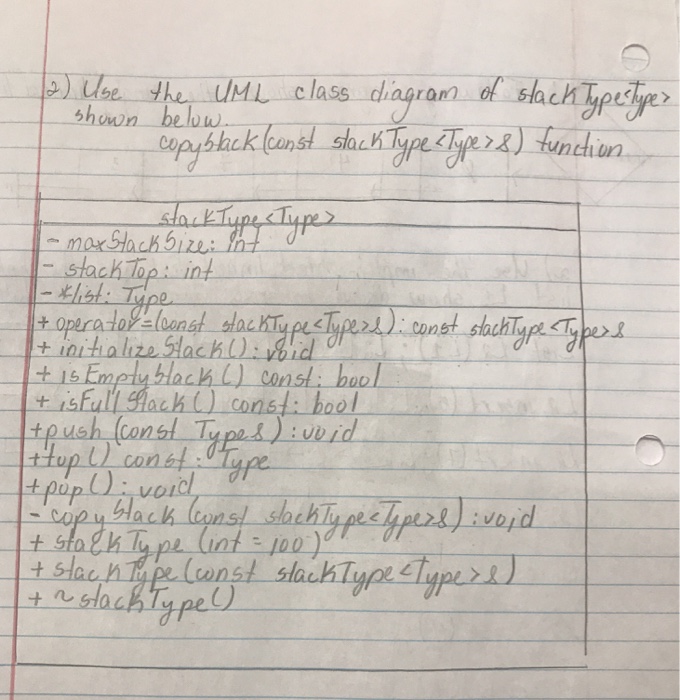 2) Use the UML class diagram of stackType<Type>
shown below.
copyStack(const stackType<Type>&) function
stackType<Type>
- maxStackSize: int
- stackTop: int
- *list: Type
+ operator=(const stackType<Type>&): const stackType<Type>&
+ initializeStack(): void
+ isEmptyStack() const: bool
+ isFullStack() const: bool
+push (const Type&): void
+top() const: Type
+pop(): void
- copyStack (const stackType<Type>&): void
+ stackType (int = 100)
+ stackType (const stackType<Type>&)
+ ~stackType()